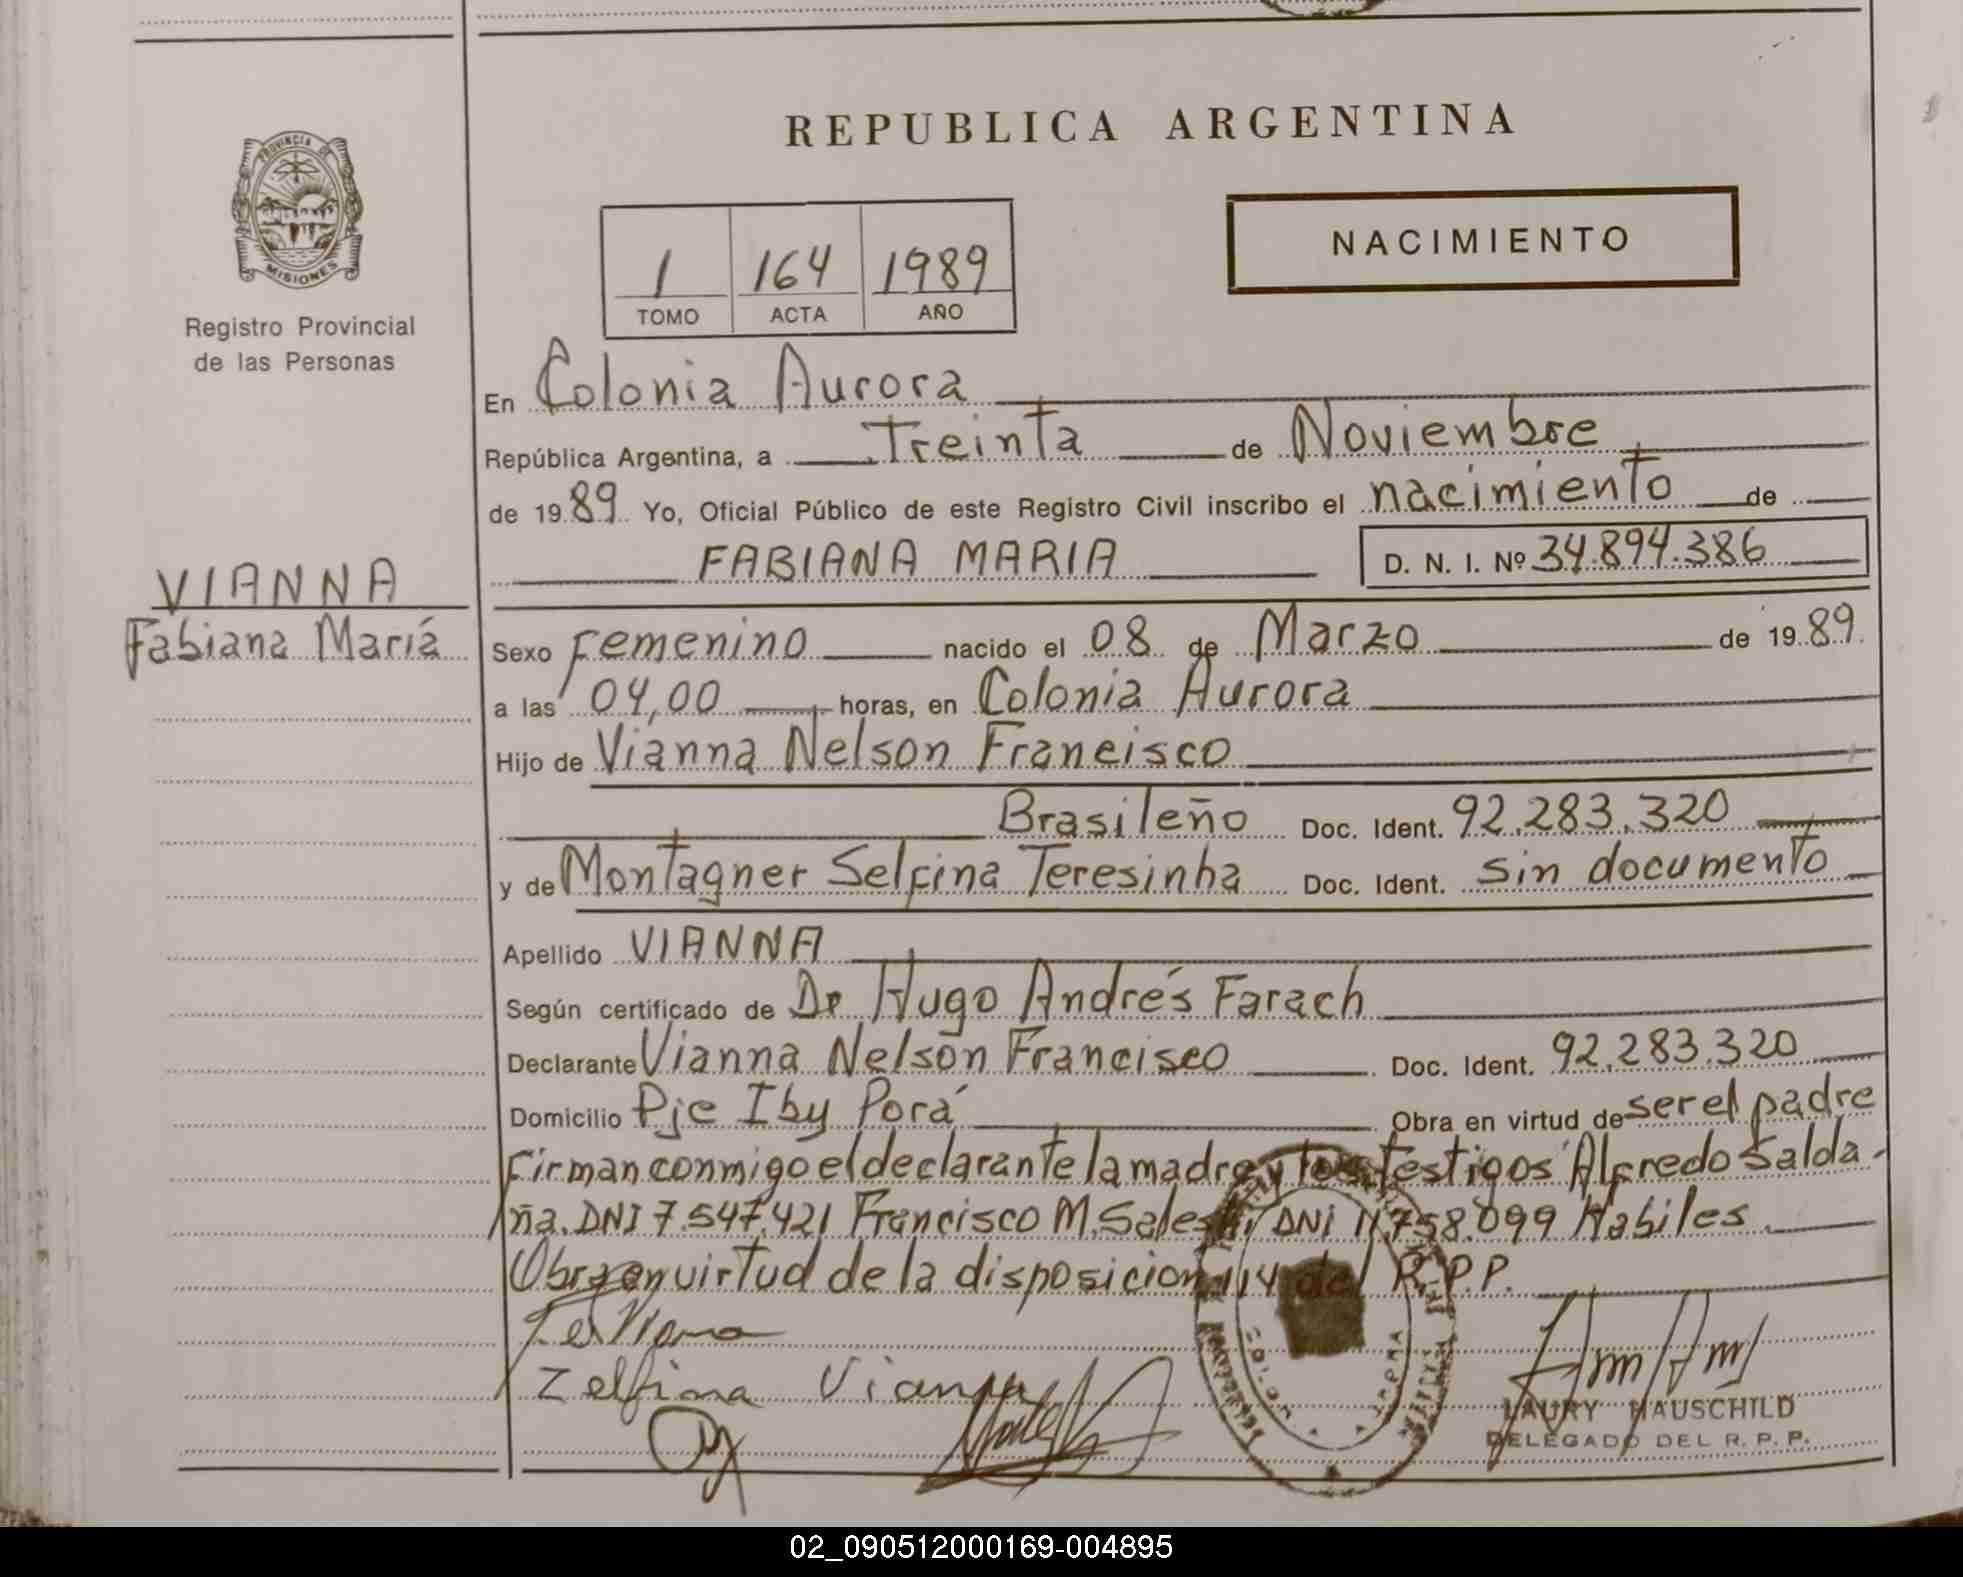 REPUBLICA ARGENTINA
PROVINCIA DE
MISIONES
Registro Provincial
de las Personas
1 164 1989
TOMO ACTA AÑO
NACIMIENTO
En Colonia Aurora
República Argentina, a Treinta de Noviembre
de 1989 Yo, Oficial Público de este Registro Civil inscribo el nacimiento de
FABIANA MARIA D. N. I. Nº 34.894.386
VIANNA
Fabiana María
Sexo Femenino nacido el 08 de Marzo de 1989
a las 04,00 horas, en Colonia Aurora
Hijo de Vianna Nelson Francisco
Brasileño Doc. Ident. 92.283.320
y de Montagner Selfina Teresinha Doc. Ident. sin documento
Apellido VIANNA
Según certificado de Dr Hugo Andrés Farach
Declarante Vianna Nelson Francisco Doc. Ident. 92.283.320
Domicilio Pje Iby Porá Obra en virtud de ser el padre
Firman conmigo el declarante la madre y los testigos Alfredo Salda-
ña. DNI 7.547.421 Francisco M. DNI 11.758.099 Habiles
Obra en virtud de la disposicion 114 del R.P.P.
Zelfima Vianna
LAURY HAUSCHILD
DELEGADO DEL R. P. P.
02_090512000169-004895